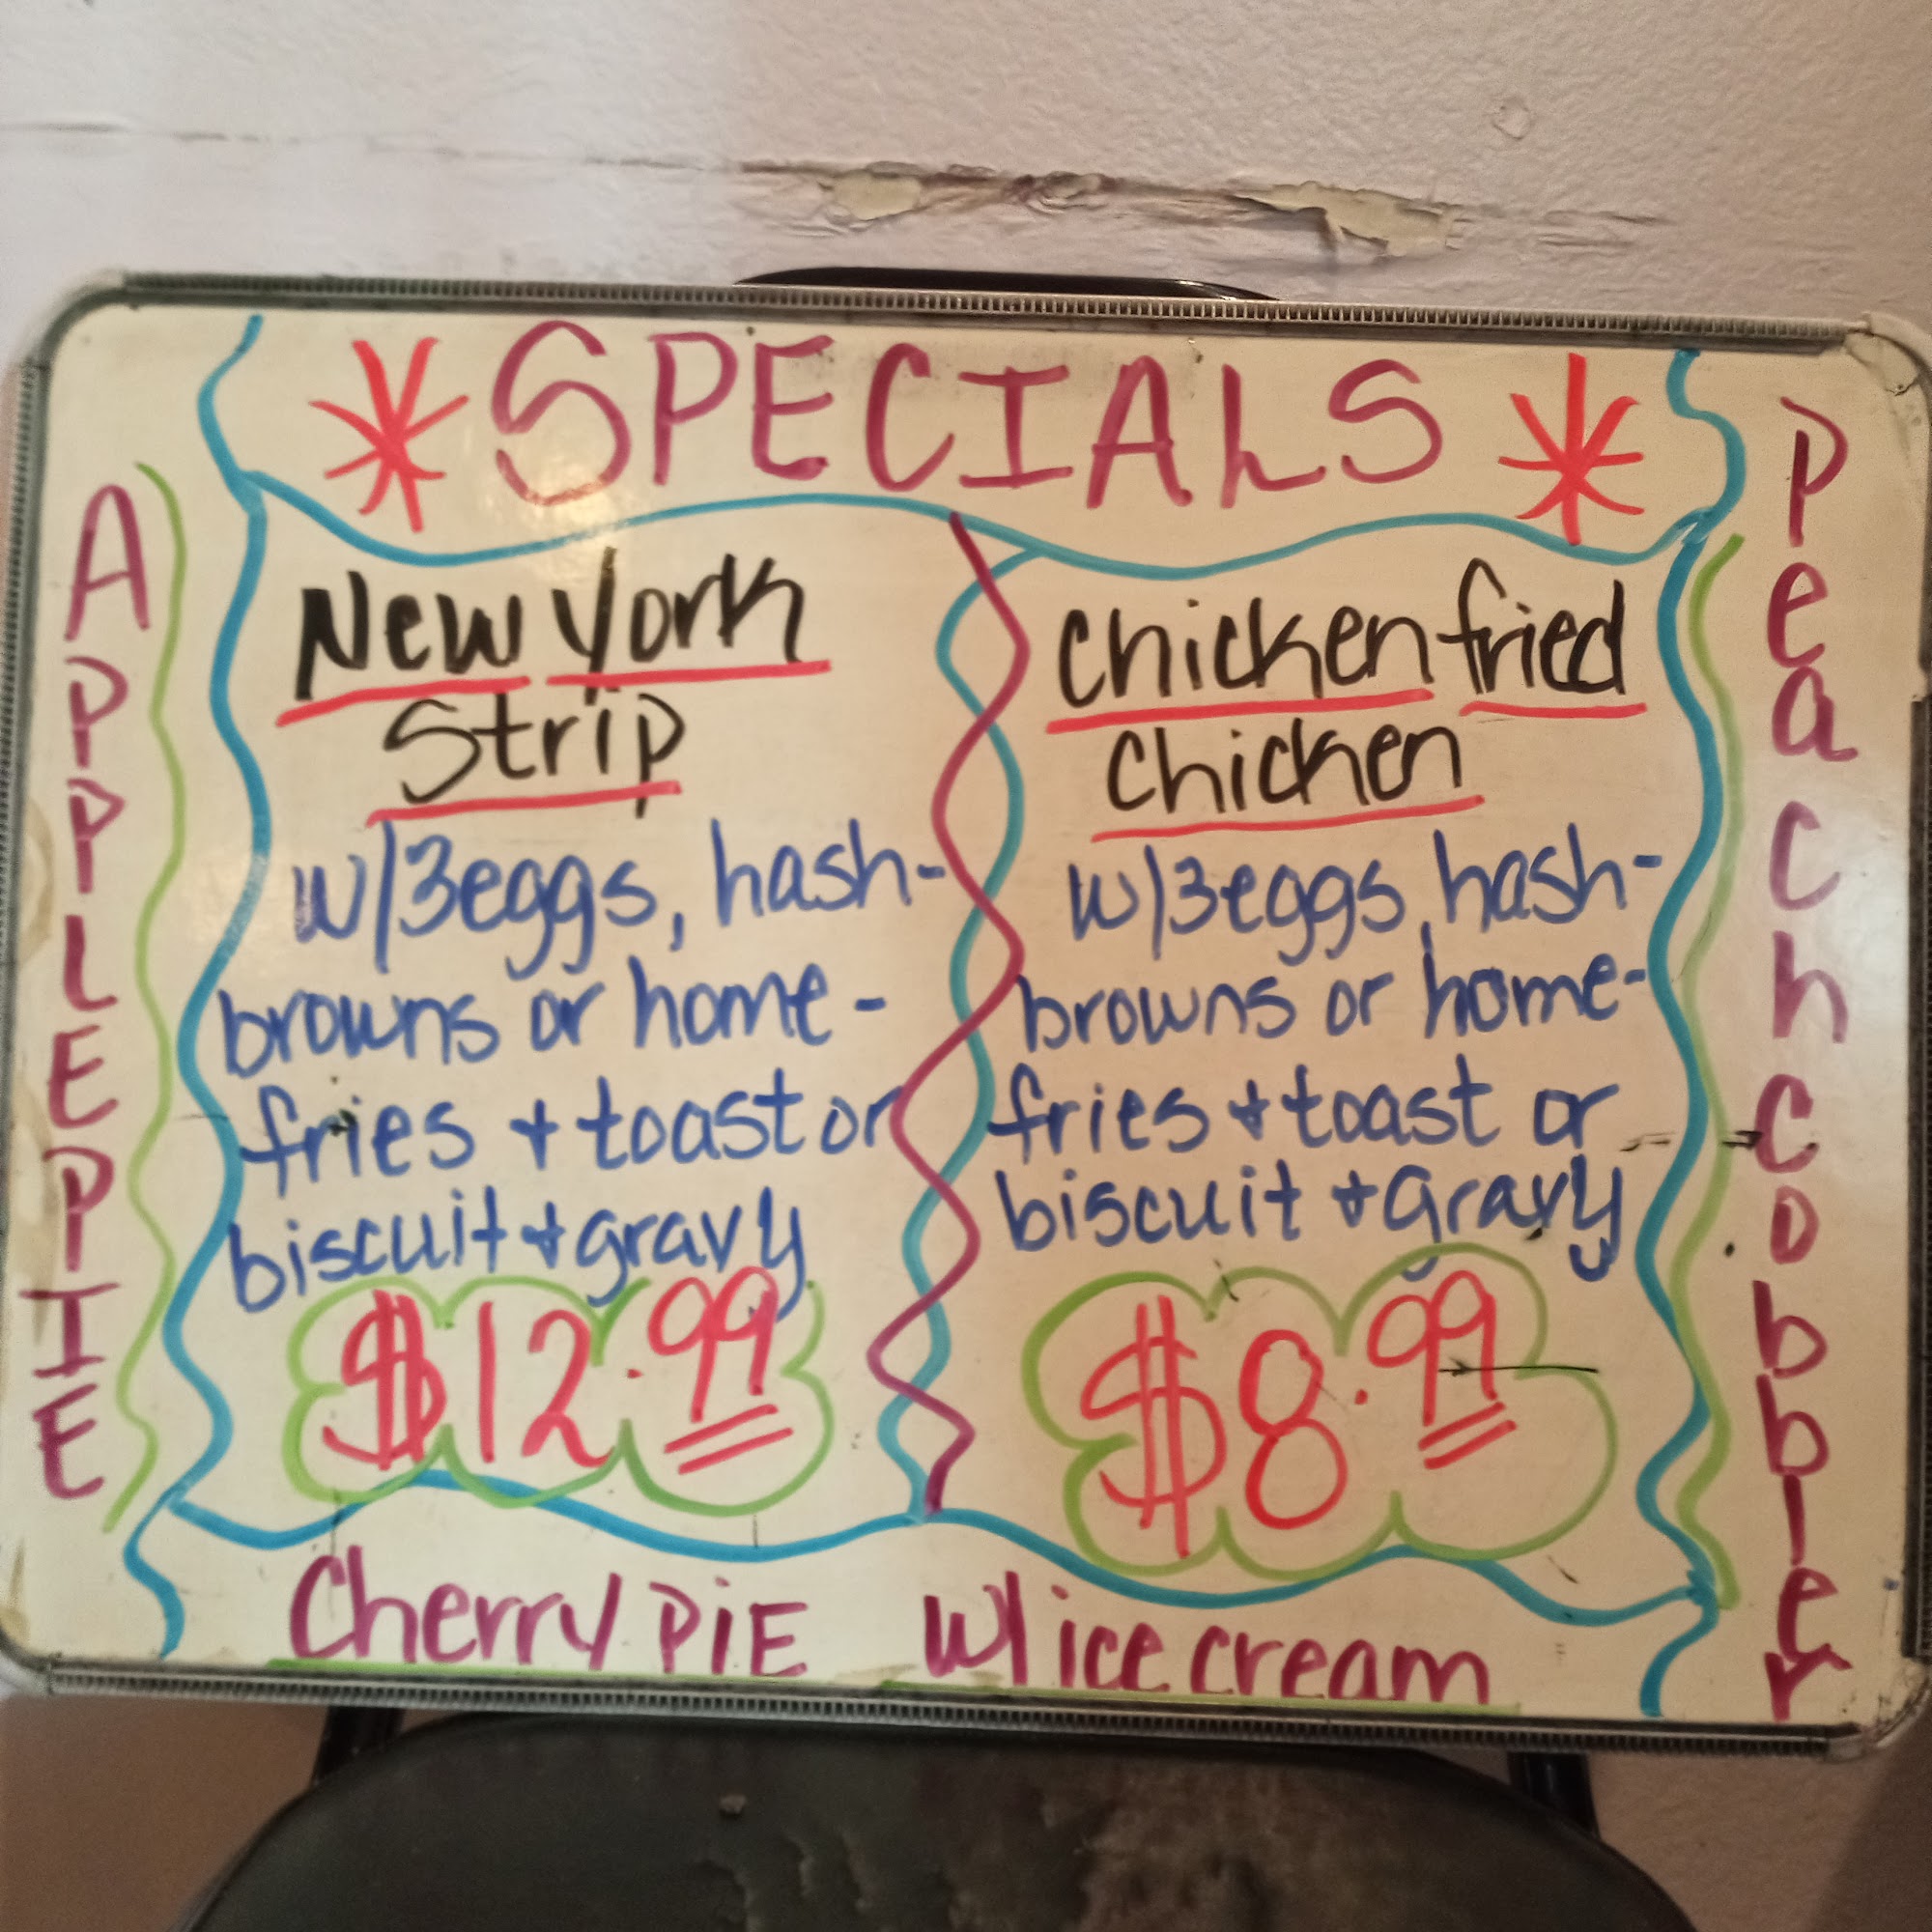 SPECIALS
APPLE PIE
New York
Strip
w/3eggs, hash-
browns or home-
fries + toast or
biscuit + gravy
$12.99
Chicken fried
Chicken
w/3eggs, hash-
browns or home-
fries + toast or
biscuit + gravy
$8.99
Peach Cobbler
Cherry PiE w/ ice cream